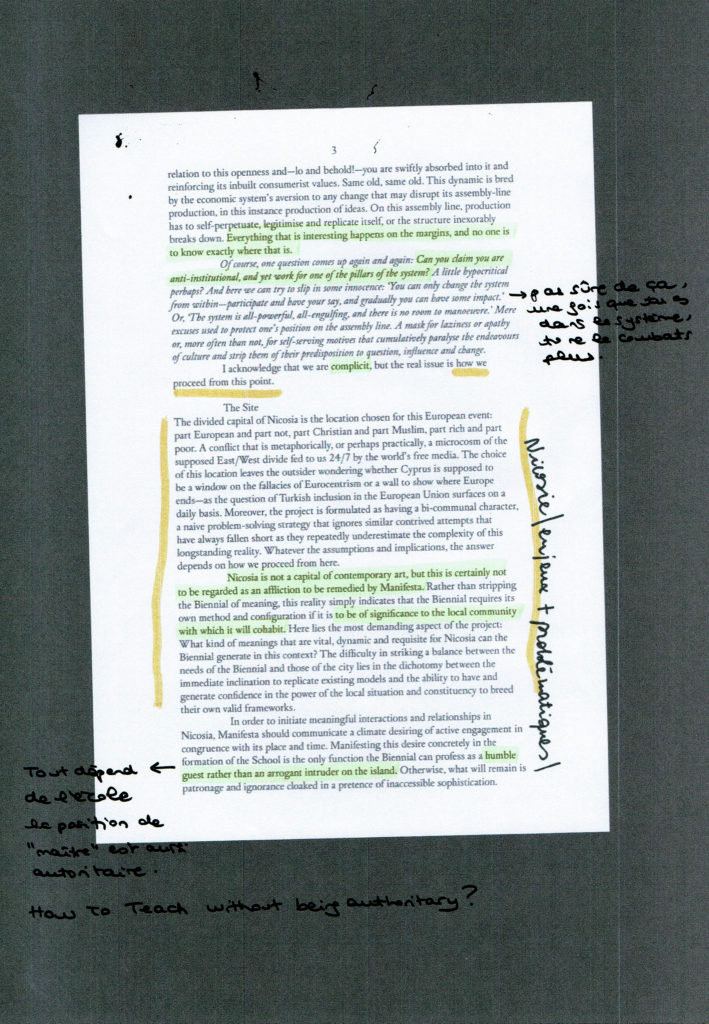 3
relation to this openness and—lo and behold!—you are swiftly absorbed into it and
reinforcing its inbuilt consumerist values. Same old, same old. This dynamic is bred
by the economic system's aversion to any change that may disrupt its assembly-line
production, in this instance production of ideas. On this assembly line, production
has to self-perpetuate, legitimise and replicate itself, or the structure inexorably
breaks down. Everything that is interesting happens on the margins, and no one is
to know exactly where that is.
Of course, one question comes up again and again: Can you claim you are
anti-institutional, and yet work for one of the pillars of the system? A little hypocritical
perhaps? And here we can try to slip in some innocence: 'You can only change the system
from within—participate and have your say, and gradually you can have some impact.'
Or, 'The system is all-powerful, all-engulfing, and there is no room to manoeuvre.' Mere
excuses used to protect one's position on the assembly line. A mask for laziness or apathy
or, more often than not, for self-serving motives that cumulatively paralyse the endeavours
of culture and strip them of their predisposition to question, influence and change.
I acknowledge that we are complicit, but the real issue is how we
proceed from this point.
→ pas sûre de ça,
une fois que tu es
dans le système,
tu ne le combats
plus.
The Site
The divided capital of Nicosia is the location chosen for this European event:
part European and part not, part Christian and part Muslim, part rich and part
poor. A conflict that is metaphorically, or perhaps practically, a microcosm of the
supposed East/West divide fed to us 24/7 by the world's free media. The choice
of this location leaves the outsider wondering whether Cyprus is supposed to
be a window on the fallacies of Eurocentrism or a wall to show where Europe
ends—as the question of Turkish inclusion in the European Union surfaces on a
daily basis. Moreover, the project is formulated as having a bi-communal character,
a naive problem-solving strategy that ignores similar contrived attempts that
have always fallen short as they repeatedly underestimate the complexity of this
longstanding reality. Whatever the assumptions and implications, the answer
depends on how we proceed from here.
Nicosia is not a capital of contemporary art, but this is certainly not
to be regarded as an affliction to be remedied by Manifesta. Rather than stripping
the Biennial of meaning, this reality simply indicates that the Biennial requires its
own method and configuration if it is to be of significance to the local community
with which it will cohabit. Here lies the most demanding aspect of the project:
What kind of meanings that are vital, dynamic and requisite for Nicosia can the
Biennial generate in this context? The difficulty in striking a balance between the
needs of the Biennial and those of the city lies in the dichotomy between the
immediate inclination to replicate existing models and the ability to have and
generate confidence in the power of the local situation and constituency to breed
their own valid frameworks.
In order to initiate meaningful interactions and relationships in
Nicosia, Manifesta should communicate a climate desiring of active engagement in
congruence with its place and time. Manifesting this desire concretely in the
formation of the School is the only function the Biennial can profess as a humble
guest rather than an arrogant intruder on the island. Otherwise, what will remain is
patronage and ignorance cloaked in a pretence of inaccessible sophistication.
Nicosie/enjeux + problématiques/
Tout dépend ←
de l'école
la position de
"maître" est aussi
autoritaire.
How To Teach without being authoritary?